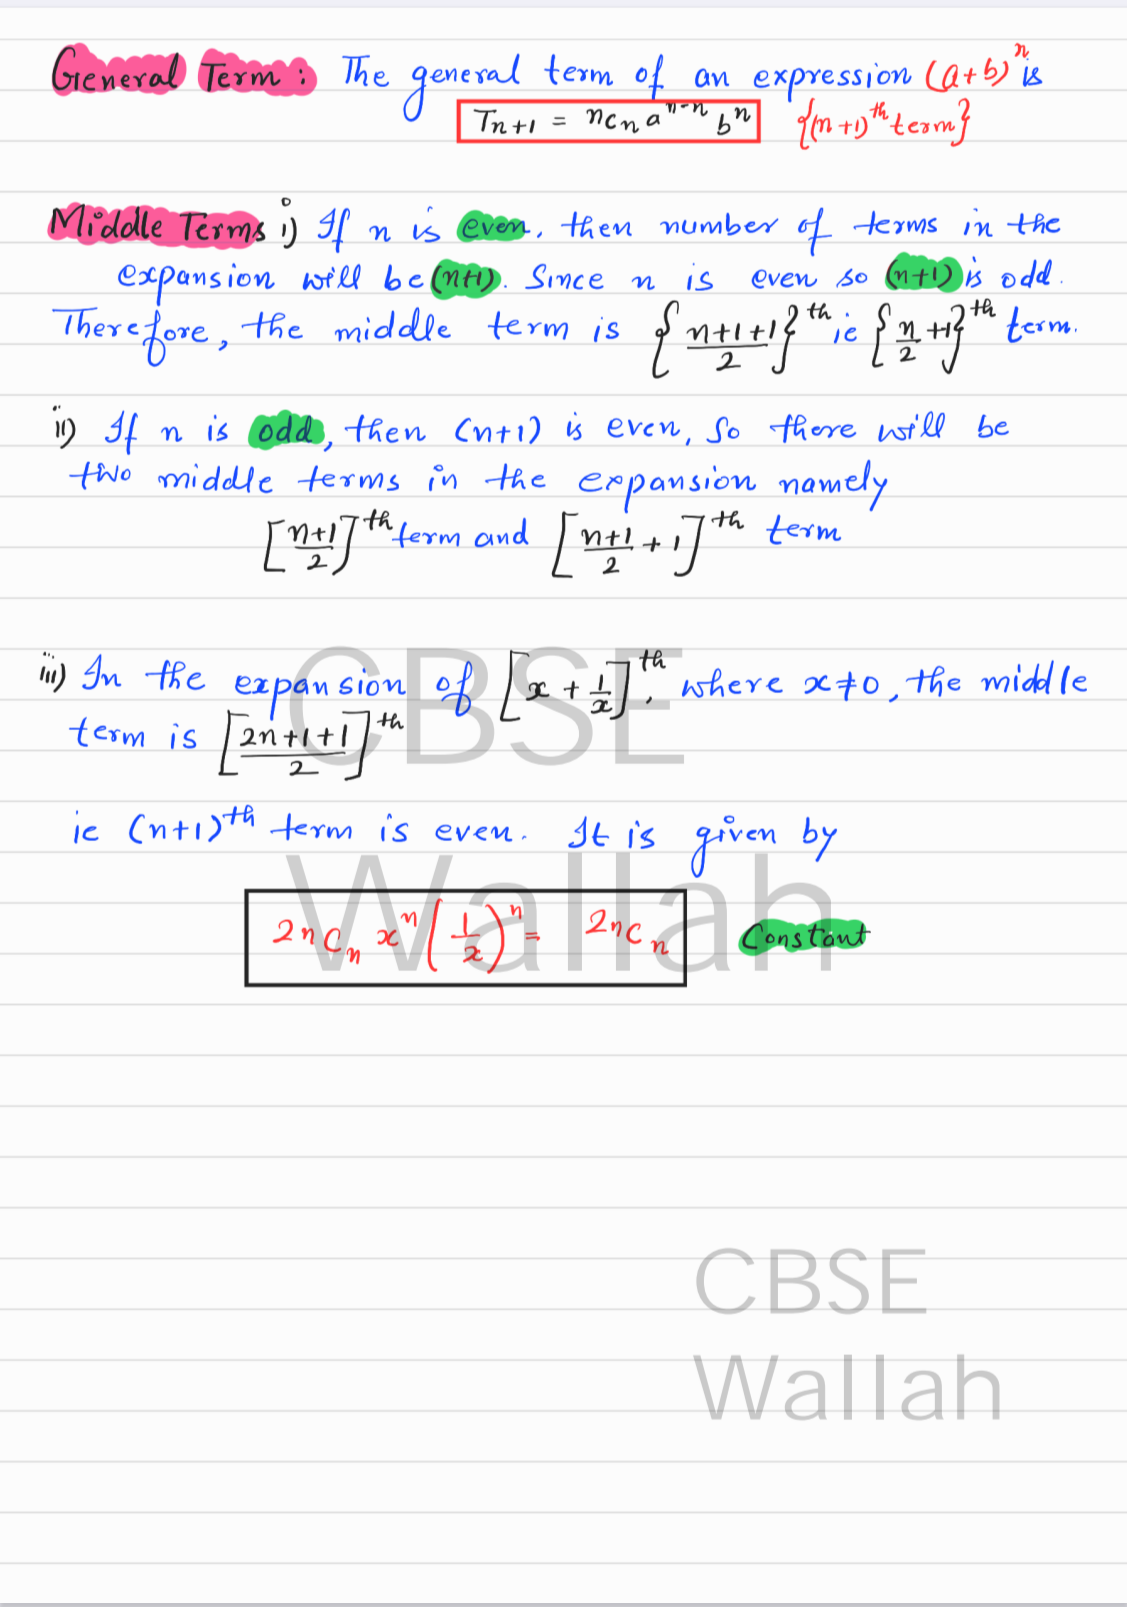 General Term : The general term of an expression (a+b)ⁿ is
Tn+1 = nCn aⁿ⁻ⁿ bⁿ {(n+1)th term}
Middle Terms i) If n is even, then number of terms in the
expansion will be (n+1). Since n is even so (n+1) is odd.
Therefore, the middle term is {(n+1+1)/2}th ie {n/2 +1}th term.
ii) If n is odd, then (n+1) is even, So there will be
two middle terms in the expansion namely
[(n+1)/2]th term and [(n+1)/2 + 1]th term
iii) In the expansion of [x + 1/x]th, where x≠0, the middle
term is [(2n+1+1)/2]th
ie (n+1)th term is even. It is given by
2nCn xⁿ (1/x)ⁿ = 2nCn Constant
CBSE
Wallah
CBSE
Wallah